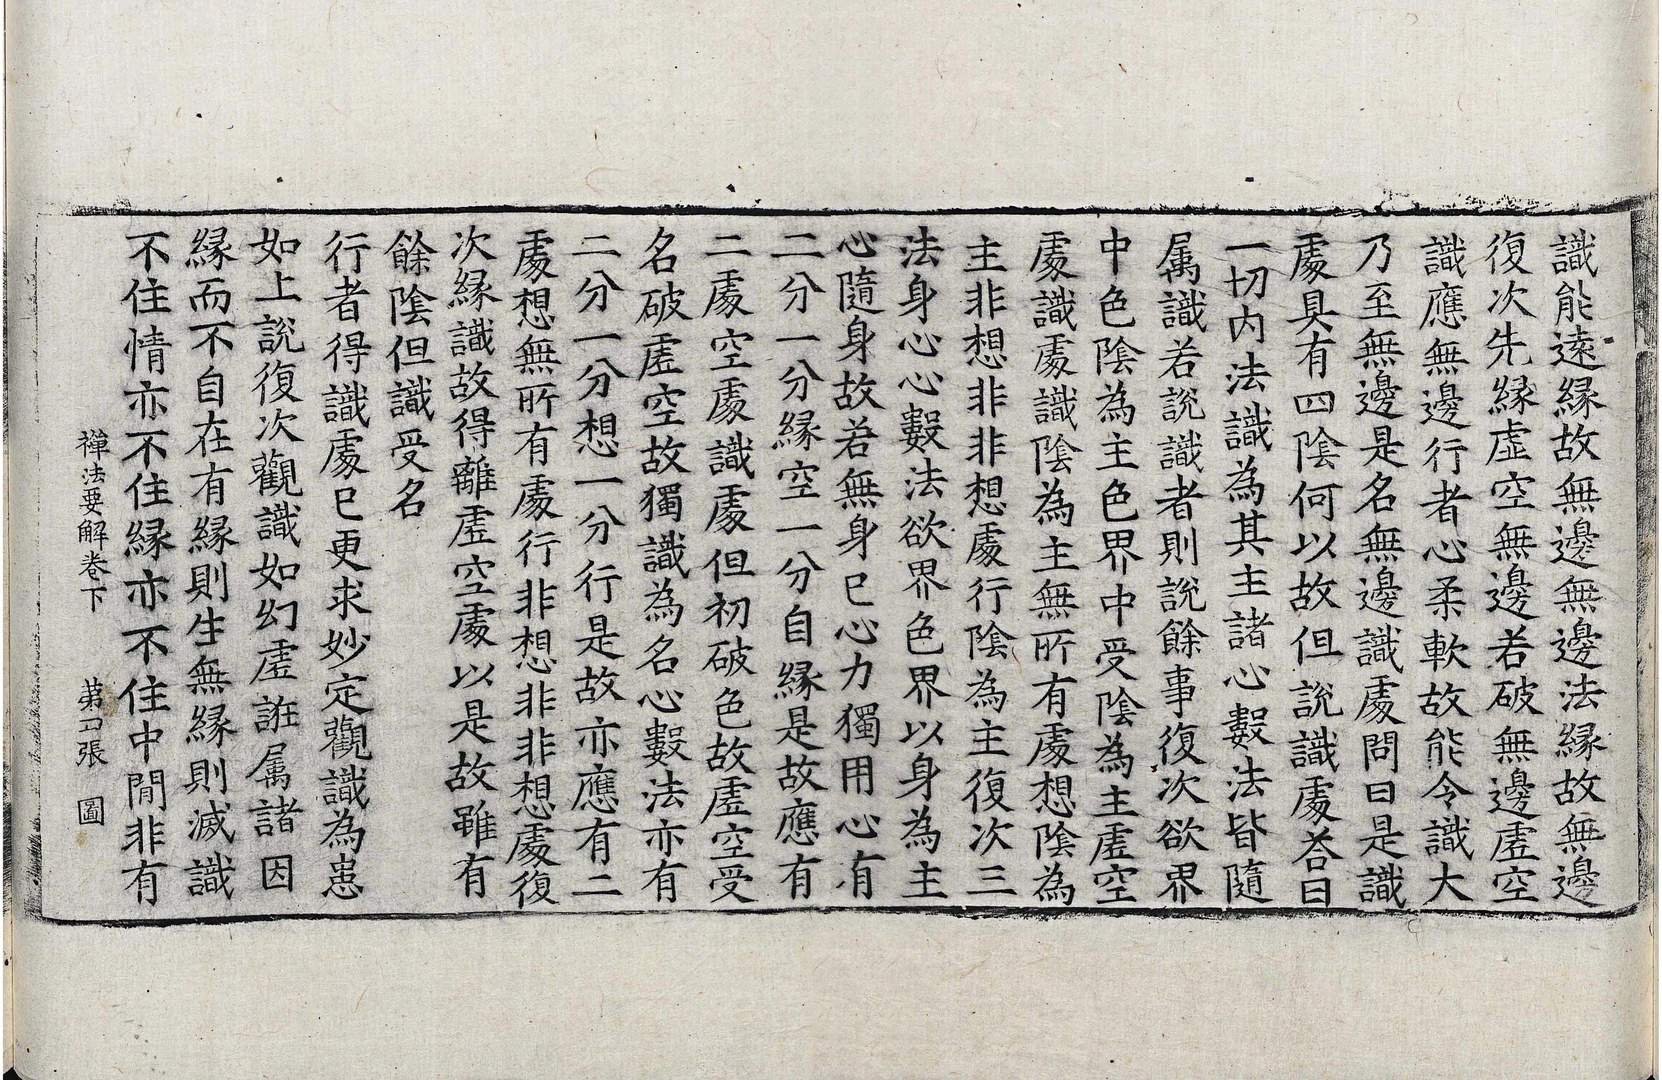 識能遠縁故無邊無邊法縁故無邊
復次先縁虛空無邊若破無邊虛空
識應無邊行者心柔軟故能令識大
乃至無邊是名無邊識處問曰是識
處具有四陰何以故但說識處荅曰
一切內法識為其主諸心數法皆隨
属識若說識者則說餘事復次欲界
中色陰為主色界中受陰為主虛空
處識處識陰為主無所有處想陰為
主非想非非想處行陰為主復次三
法身心心數法欲界色界以身為主
心隨身故若無身已心力獨用心有
二分一分縁空一分自縁是故應有
二處空處識處但初破色故虛空受
名破虛空故獨識為名心數法亦有
二分一分想一分行是故亦應有二
處想無所有處行非想非非想處復
次縁識故得離虛空處以是故雖有
餘陰但識受名
行者得識處已更求妙定觀識為患
如上說復次觀識如幻虛誑属諸因
縁而不自在有縁則生無縁則滅識
不住情亦不住縁亦不住中閒非有
禪法要解卷下 第四張 圖